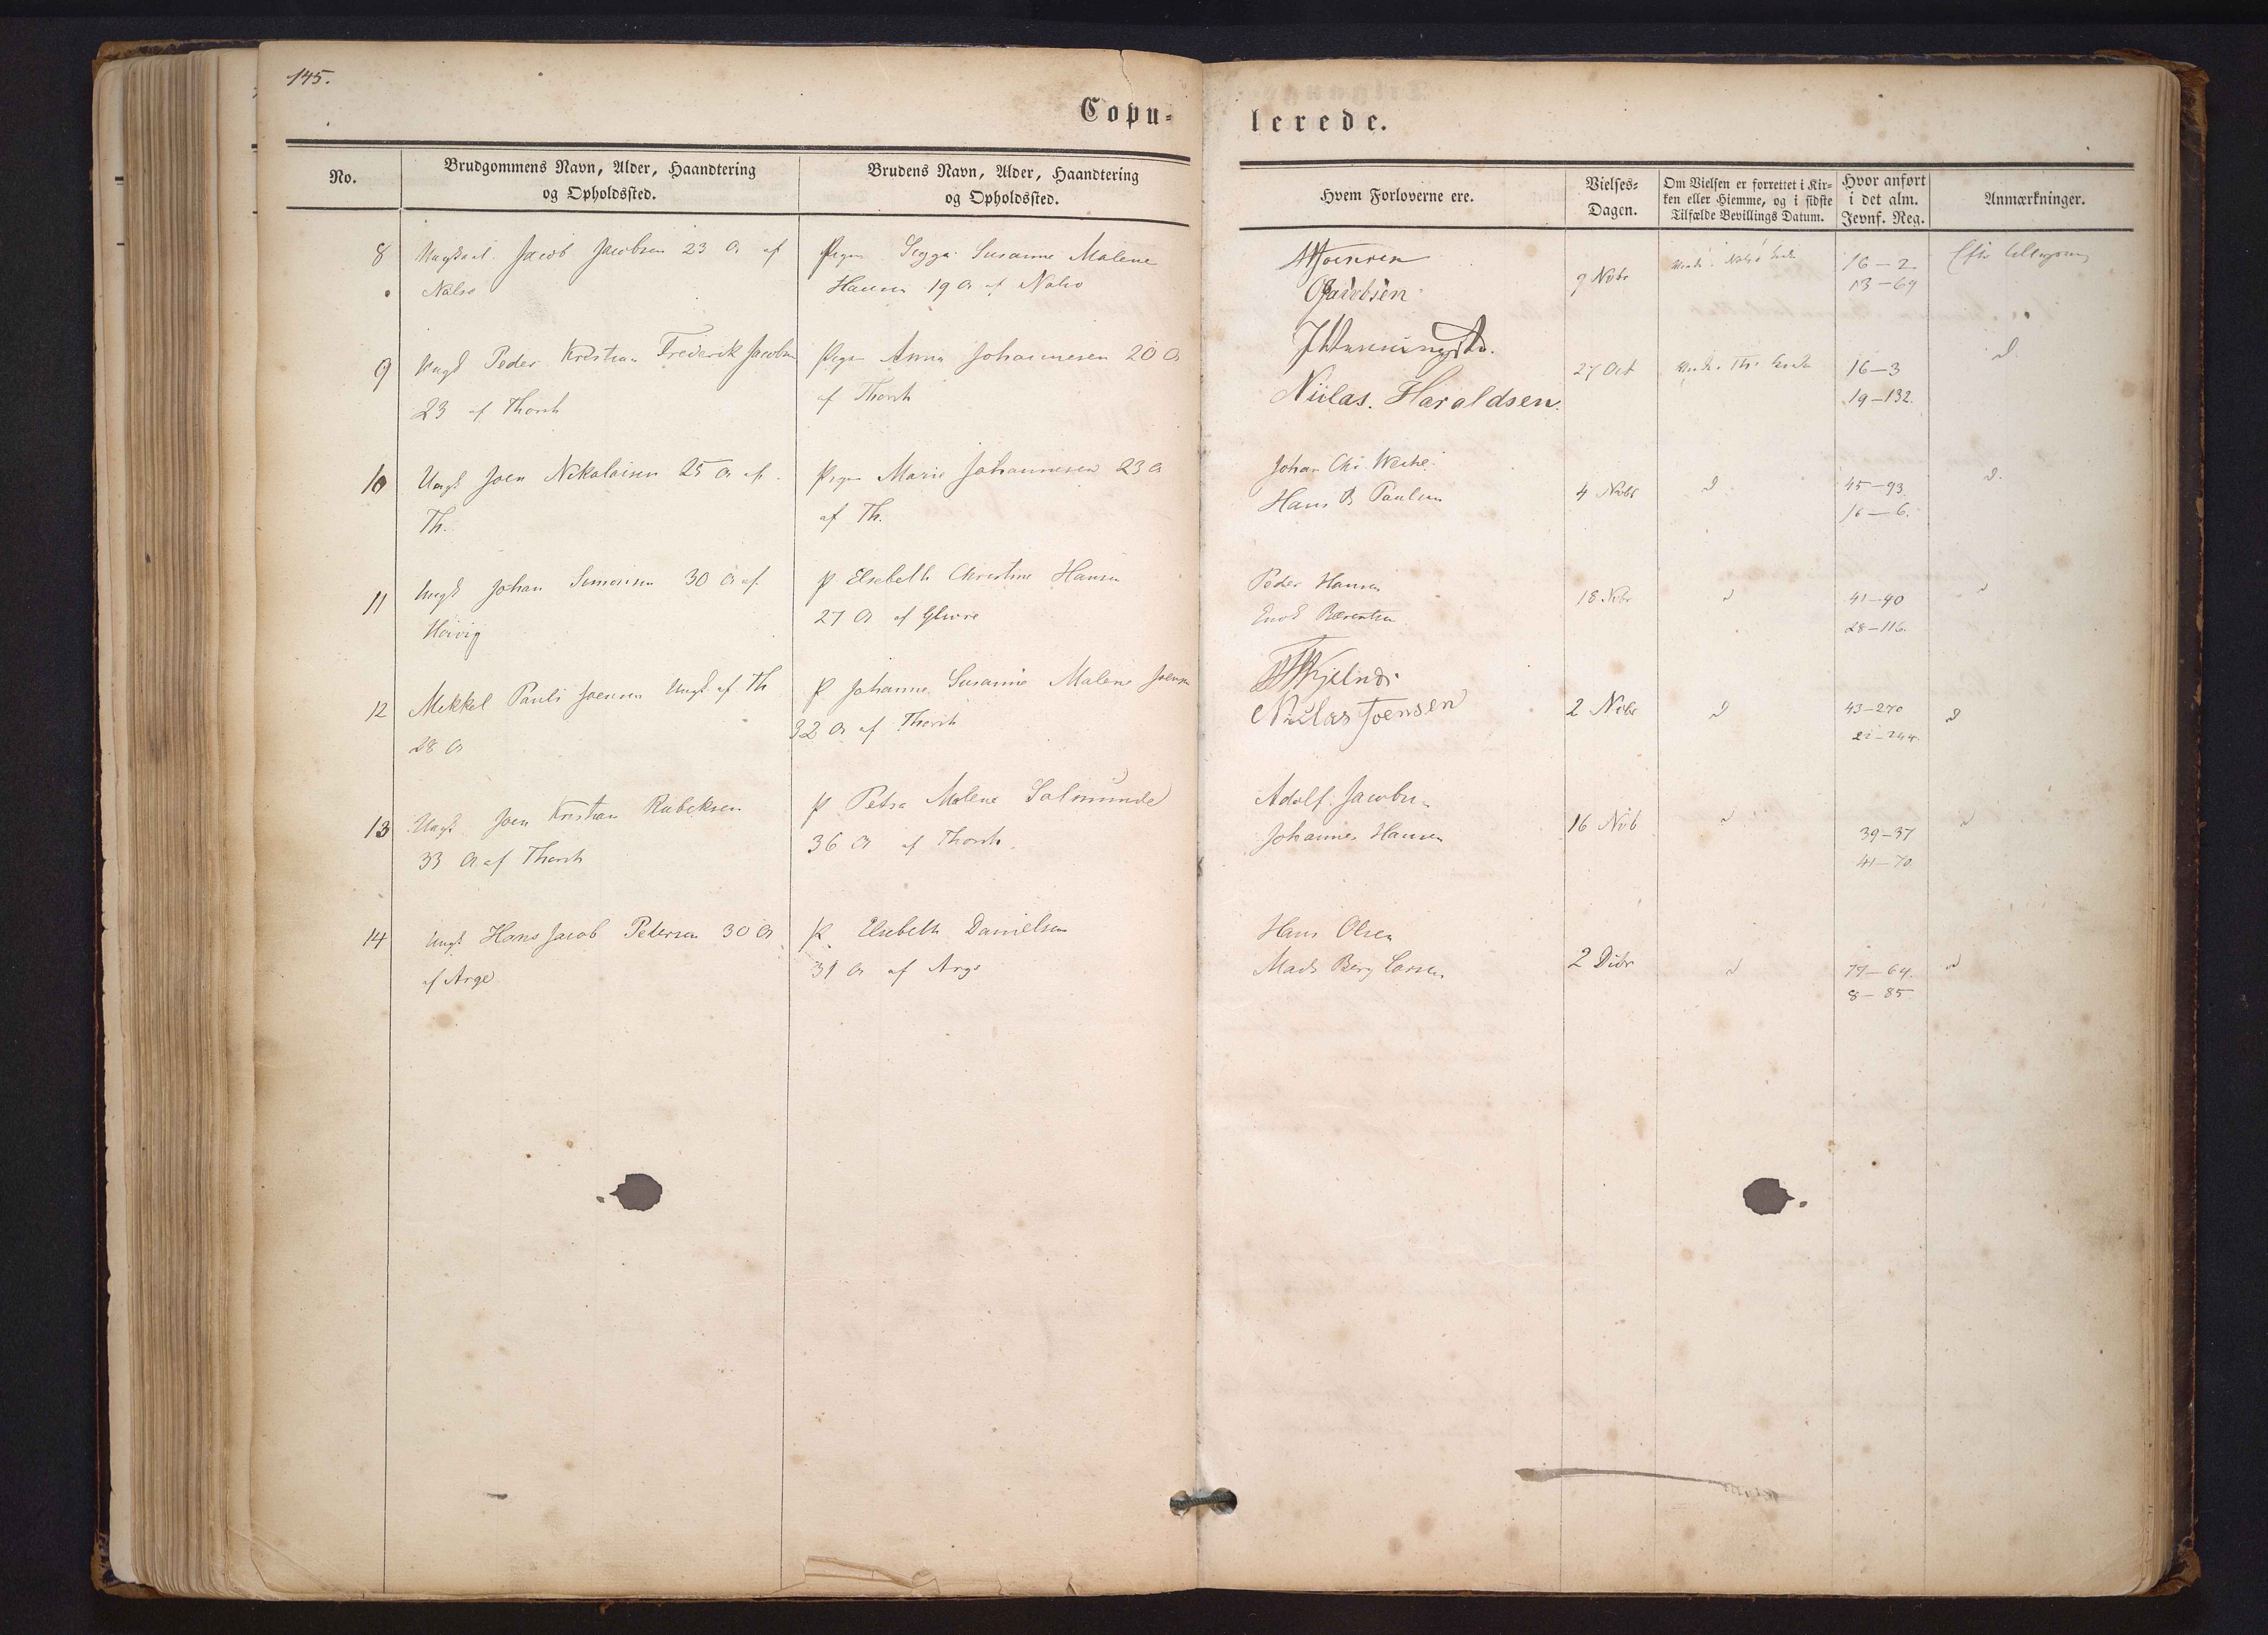 145.
Copu=
lerede.
No.
Brudgommens Navn, Alder, Haandtering
og Opholdssted.
Brudens Navn, Alder, Haandtering
og Opholdssted.
Hvem Forloverne ere.
Vielses=
Dagen.
Om Vielsen er forrettet i Kir=
ken eller Hiemme, og i sidste
Tilfælde Bevillings Datum.
Hvor anført
i det alm.
Jevnf. Reg.
Anmærkninger.
8
Ungkarl Jacob Jacobsen 23 A af
Nolsø
Pigen Susanne Malene
Hansen 19 A af Nolsø
Joensen
Jacobsen
9 Nvbr
16-2
13-69
Efter
9
Ungk Peder Kristian Frederik Jacobsen
23 af Thorsh
Pigen Anna Johannesen 20 A
af Thorsh
Niclas. Haraldsen.
27 Oct
16-3
19-132.
d
10
Ungk Joen Nikolaisen 25 A af
Th.
Pigen Marie Johannesen 23 A
af Th.
Johan Chr. Weihe.
Hans D Paulsen
4 Nvbr
d
45-93.
16-6.
d.
11
Ungk Johan Simonsen 30 A af
Hoivig
P Elsebeth Christine Hansen
27 A af
Peder Hansen
Enok Bærentsen
18 Nvbr
d
41-90
28-116.
d
12
Mikkel Pauli Joensen Ungk af Th
28 A
P Johanne Susanne Malene Joensen
32 A af Thorsh
Niclas Joensen
2 Nvbr
d
43-270
22-244.
d
13
Ungk Joen Kristian Rubeksen
33 A af Thorsh
P Petra Malene Salmunde
36 A af Thorsh.
Adolf Jacobsen
Johannes Hansen
16 Nvb
d
39-37
41-70.
d
14
Ungk Hans Jacob Petersen 30 A
af Arge
P. Elsebeth Danielsen
31 A af Arge
Hans Olsen
Mads Berg Larsen
2 Dcbr
d
77-64.
8-85
d